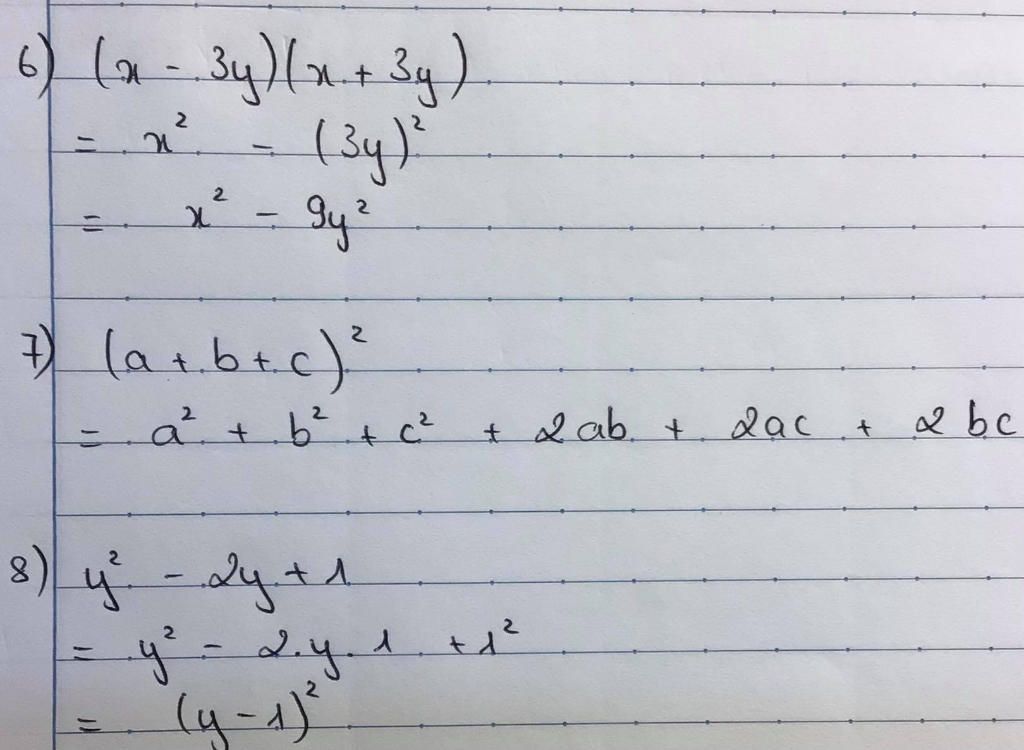 6) (x - 3y)(x + 3y)
= x² - (3y)²
= x² - 9y²
7) (a + b + c)²
= a² + b² + c² + 2ab + 2ac + 2bc
8) y² - 2y + 1
= y² - 2.y.1 + 1²
= (y - 1)²